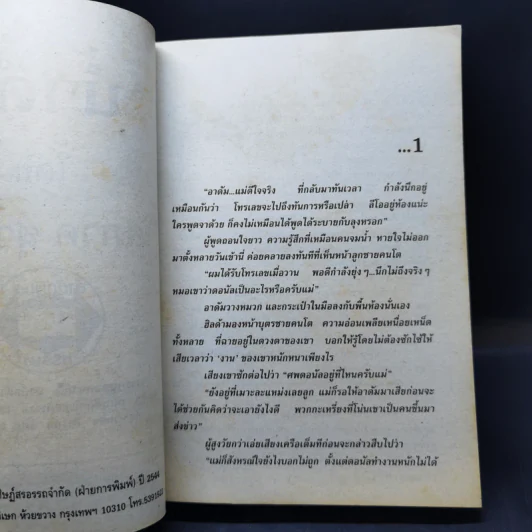 ...1
“อาดัม...แม่ดีใจจริง ที่กลับมาทันเวลา กำลังนึกอยู่
เหมือนกันว่า โทรเลขจะไปถึงทันการหรือเปล่า ลีโออยู่ห้องแน่ะ
ใครพูดจาด้วย ก็คงไม่เหมือนได้พูดได้ระบายกับลุงหรอก”
ผู้พูดถอนใจยาว ความรู้สึกที่เหมือนคนจมน้ำ หายใจไม่ออก
มาตั้งหลายวันเช้านี่ ค่อยคลายลงทันทีที่เห็นหน้าลูกชายคนโต
“ผมได้รับโทรเลขเมื่อวาน พอดีกำลังยุ่งๆ...นึกไม่ถึงจริงๆ
หมอเขาว่าดอนัลเป็นอะไรหรือครับแม่”
อาดัมวางหมวก และกระเป๋าในมือลงกับพื้นห้องนั่นเอง
ฮิลด้ามองหน้าบุตรชายคนโต ความอ่อนเพลียเหนื่อยเหน็ด
ทั้งหลาย ที่ฉายอยู่ในดวงตาของเขา บอกให้รู้โดยไม่ต้องซักไซ้ให้
เสียเวลาว่า ‘งาน’ ของเขาหนักหนาเพียงไร
เสียงเขาซักต่อไปว่า “ศพดอนัลอยู่ที่ไหนครับแม่”
“ยังอยู่ที่เมาะละแหม่งเลยลูก แม่ก็รอให้อาดัมมาเสียก่อนจะ
ได้ช่วยกันคิดว่าจะเอายังไงดี พวกกะเหรี่ยงที่โน่นเขาเป็นคนขึ้นมา
ส่งข่าว”
ผู้สูงวัยกว่าเอ่ยเสียงเครือเต็มทีก่อนจะกล่าวสืบไปว่า
“แม่ก็สังหรณ์ใจยังไงบอกไม่ถูก ตั้งแต่ดอนัลทำงานหนักไม่ได้
ษฎ์สรอรรถจำกัด (ฝ่ายการพิมพ์) ปี 2544
ห้วยขวาง กรุงเทพฯ 10310 โทร.